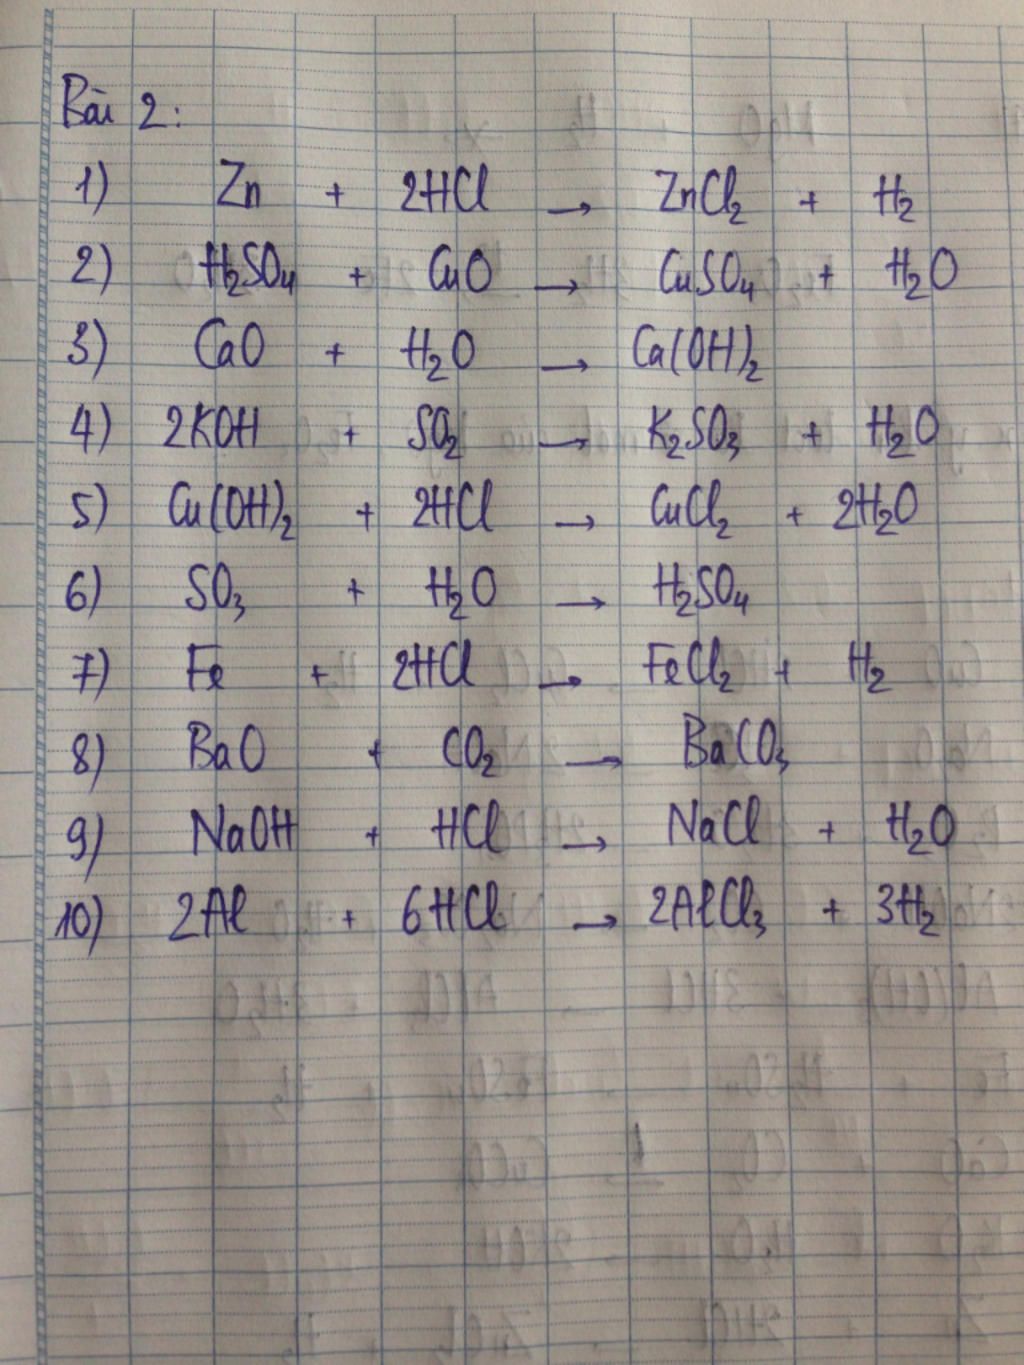 Bài 2:
1) Zn + 2HCl → ZnCl₂ + H₂
2) H₂SO₄ + CuO → CuSO₄ + H₂O
3) CaO + H₂O → Ca(OH)₂
4) 2KOH + SO₂ → K₂SO₃ + H₂O
5) Cu(OH)₂ + 2HCl → CuCl₂ + 2H₂O
6) SO₃ + H₂O → H₂SO₄
7) Fe + 2HCl → FeCl₂ + H₂
8) BaO + CO₂ → BaCO₃
9) NaOH + HCl → NaCl + H₂O
10) 2Al + 6HCl → 2AlCl₃ + 3H₂